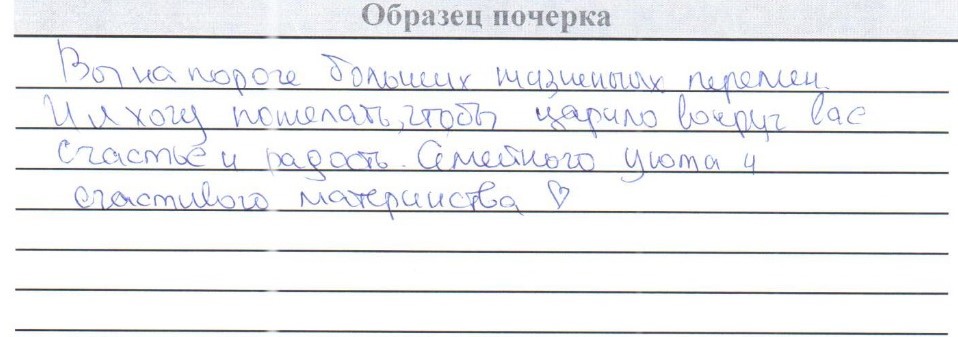 Образец почерка
Вы на пороге больших жизненых перемен.
И я хочу пожелать, чтобы царило вокруг вас
счастье и радость. Семейного уюта и
счастливого материнства ♡